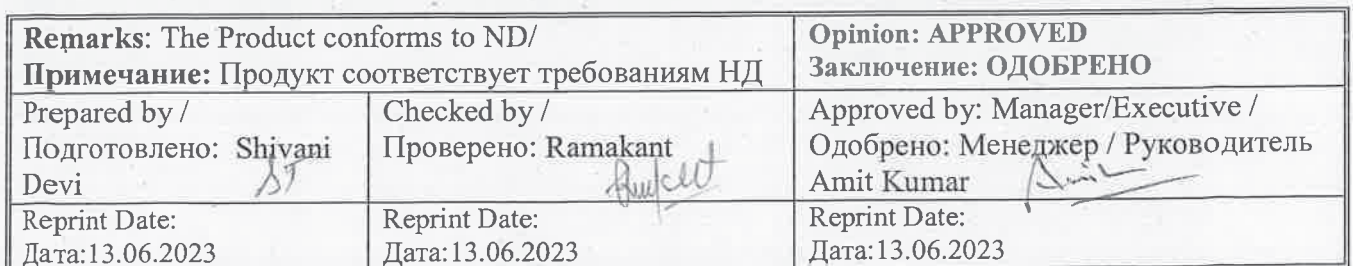 Remarks: The Product conforms to ND/
Примечание: Продукт соответствует требованиям НД
Opinion: APPROVED
Заключение: ОДОБРЕНО
Prepared by /
Подготовлено: Shivani
Devi
Checked by /
Проверено: Ramakant
Approved by: Manager/Executive /
Одобрено: Менеджер / Руководитель
Amit Kumar
Reprint Date:
Дата:13.06.2023
Reprint Date:
Дата:13.06.2023
Reprint Date:
Дата:13.06.2023